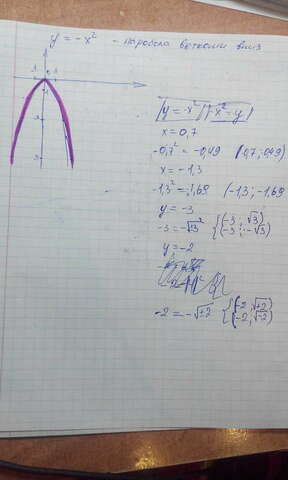 y = -x² - парабола ветками вниз
y = -x² -x² = y
x = 0,7
-0,7² = -0,49 (0,7; 0,49)
x = -1,3
-1,3² = -1,69 (-1,3; -1,69)
y = -3
-3 = -√3² {(-3; √3) (-3; -√3)
y = -2
-2 = -√±2 {(-2; √±2) (-2; √-2)